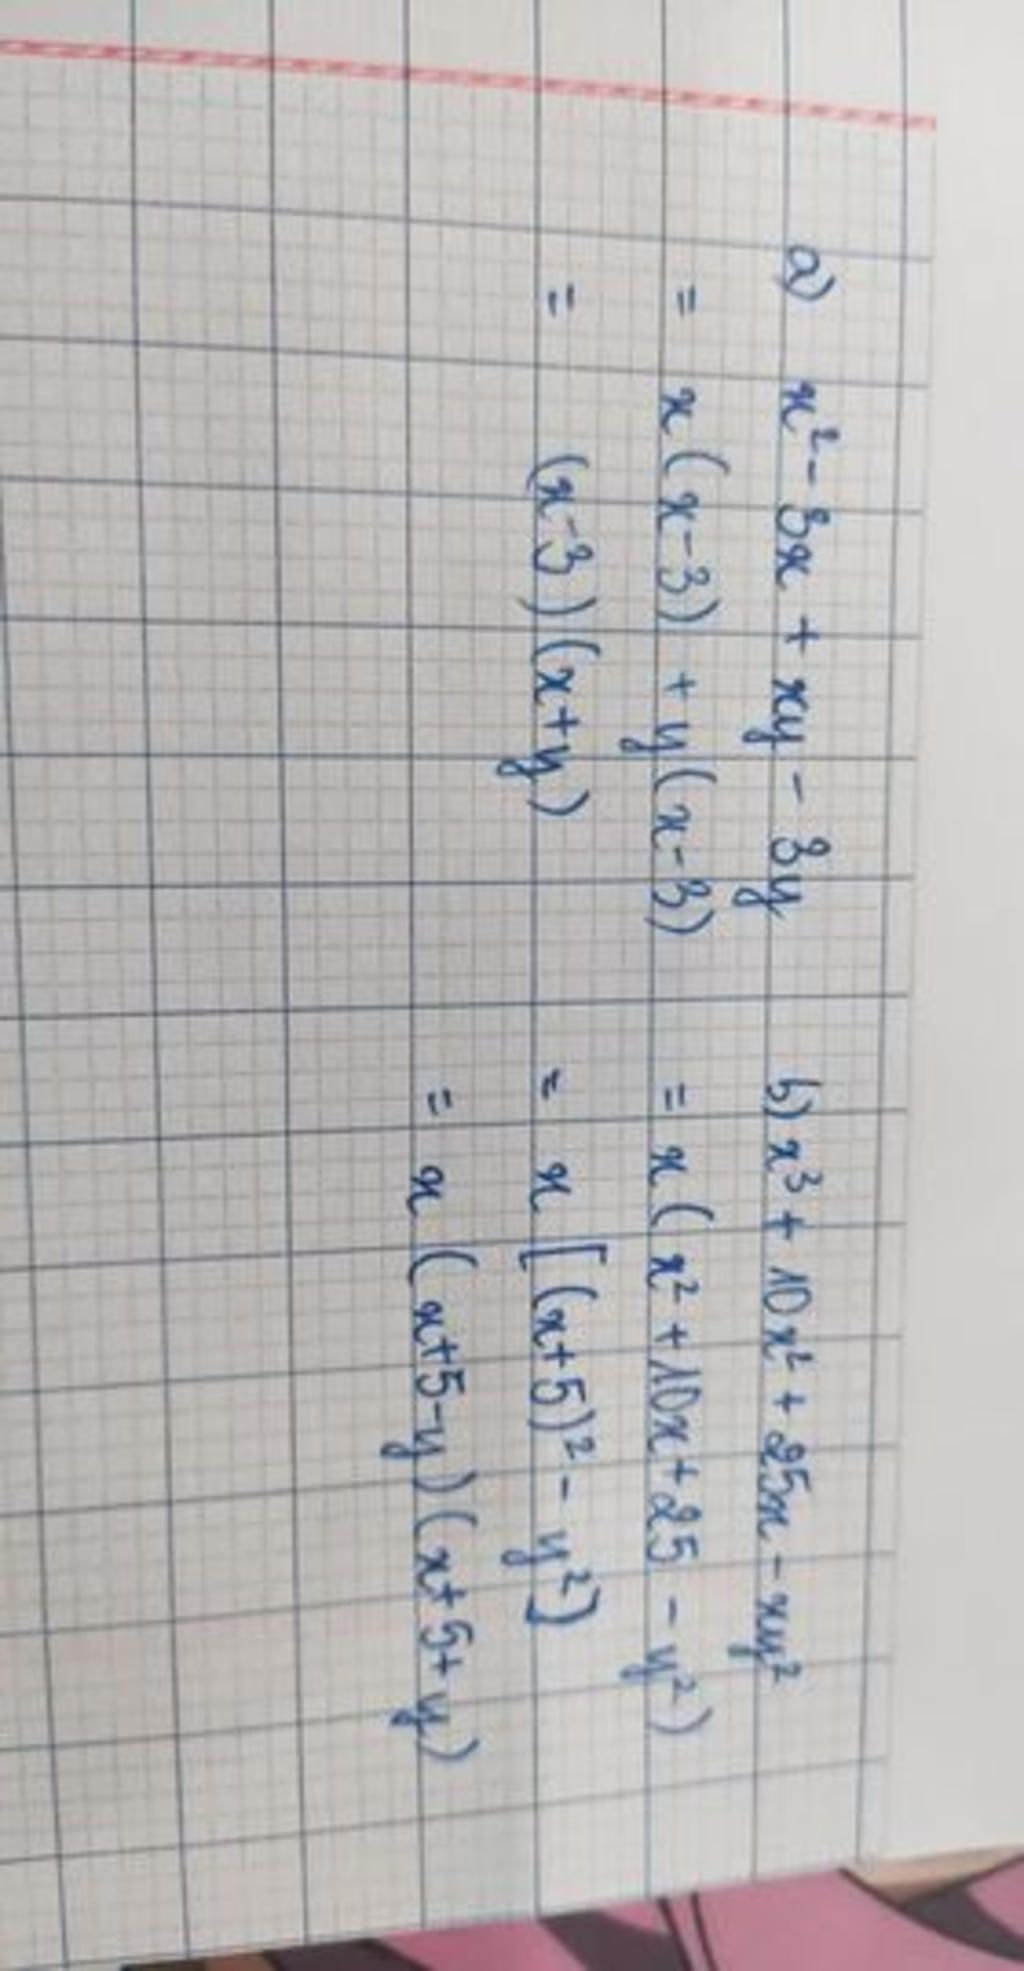 a) x² - 3x + xy - 3y
= x(x-3) + y(x-3)
= (x-3)(x+y)
b) x³ + 10x² + 25x - xy²
= x(x² + 10x + 25 - y²)
= x[(x+5)² - y²]
= x(x+5-y)(x+5+y)